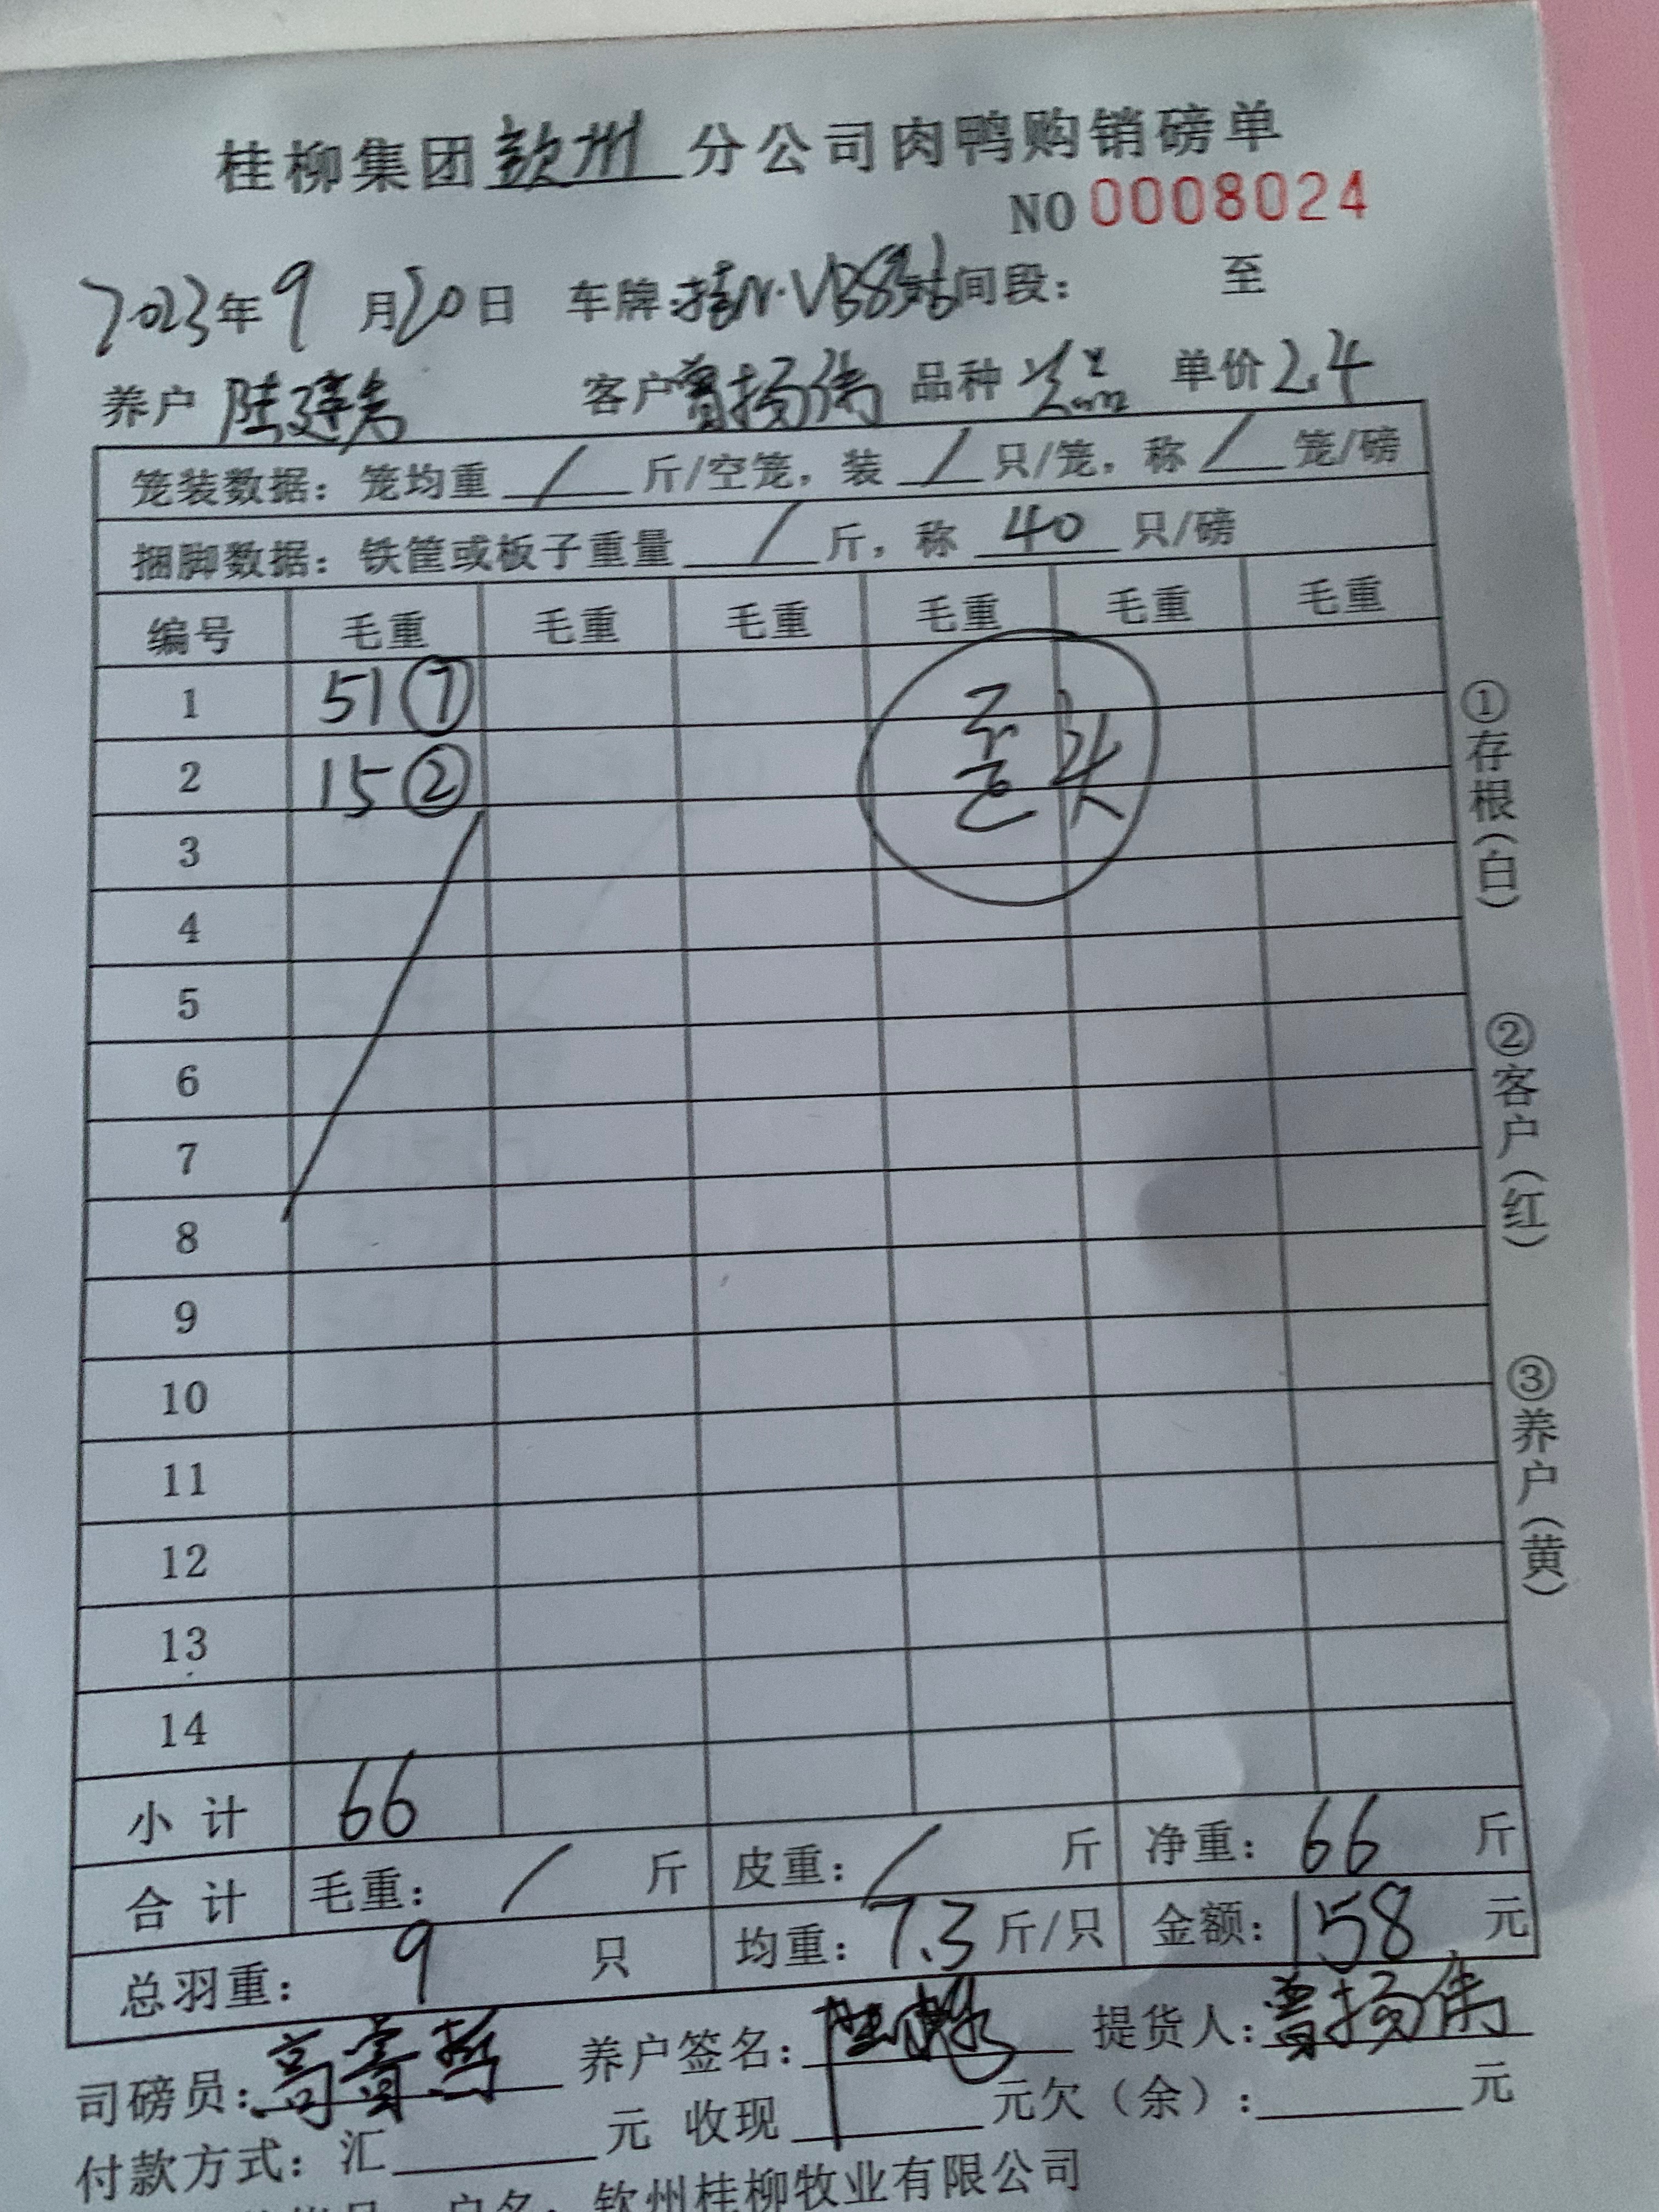 桂柳集团钦州分公司肉鸭购销磅单
NO 0008024
2023年9月20日 车牌: 时间段: 至
养户 陆建 客户曾扬伟 品种 单价2.4
笼装数据：笼均重 / 斤/空笼，装 / 只/笼，称 / 笼/磅
捆脚数据：铁筐或板子重量 / 斤，称 40 只/磅
编号 毛重 毛重 毛重 毛重 毛重 毛重
1 51⑦
2 15②
3
4
5
6
7
8
9
10
11
12
13
14
小计 66
合计 毛重： / 斤 皮重： / 斤 净重：66 斤
总羽重： 9 只 均重：7.3斤/只 金额：158 元
司磅员： 养户签名： 提货人：曾扬伟
付款方式：汇 元 收现 元欠（余）： 元
户名：钦州桂柳牧业有限公司
①存根（白）
②客户（红）
③养户（黄）